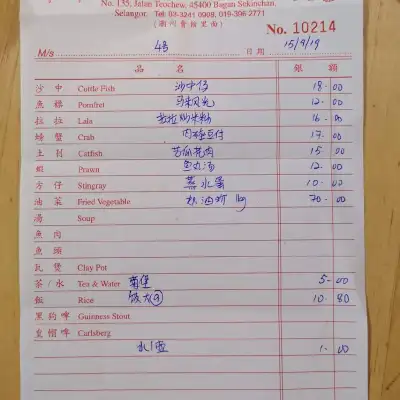 No. 135, Jalan Teochew, 45400 Bagan Sekinchan,
Selangor. Tel: 03-3241 0909, 019-396 2771
(潮州會館里面)
No. 10214
M/s 日期 15/9/19
品 名 銀 額
沙中 Cuttle Fish 18-00
魚鱠 Pomfret 12-00
拉拉 Lala 拉拉炒米粉 16-00
螃蟹 Crab 肉碎豆付 17-00
土利 Catfish 15 00
蝦 Prawn 魚丸汤 12-00
方仔 Stingray 蒸水蛋 10-00
油菜 Fried Vegetable 1kg 70-00
湯 Soup
魚肉
魚頭
瓦煲 Clay Pot
茶/水 Tea & Water 5-00
飯 Rice 饭大⑨ 10 80
黑狗啤 Guinness Stout
皇帽啤 Carlsberg
1-00